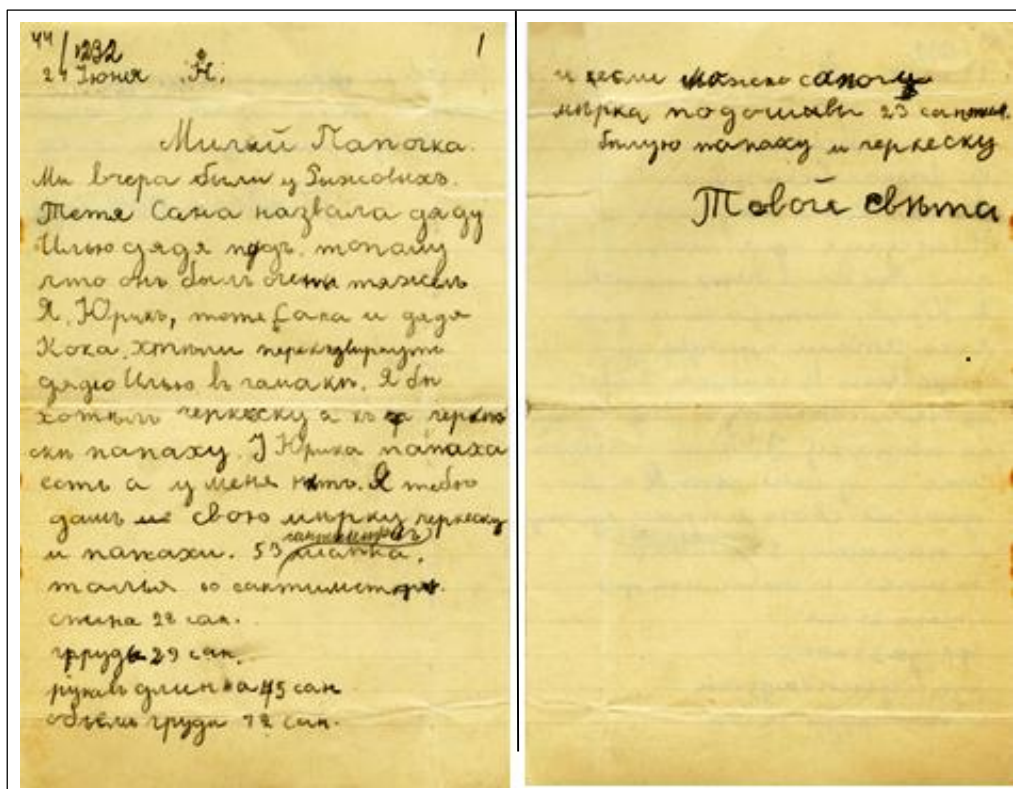 44/1232
1
24 Iюня
Милый Папочка.
Ми вчера были у Рижовихъ.
Тетя Сана назвала дяду
Илью дядя пудъ. топаму
что онъ былъ очень тяжелъ
Я, Юрикъ, тотя Сана и дядя
Кока, хтѣли
дядю Илью въ гамакѣ. Я бы
хотѣлъ черкеску а къ черкес
скѣ папаху. У Юрика папаха
есть а у меня нѣтъ. Я тебѣ
дашъ свою мѣрку черкеску
и папахи. 53 шапка.
талья 60 сантиметръ.
спина 28 сан.
груда 29 сан.
рукавъ длинна 45 сан
объемъ груди 72 сан.
и если можно сапоги
мѣрка подошвы 23 сантим.
бѣлую папаху и черкеску
Твой свѣта